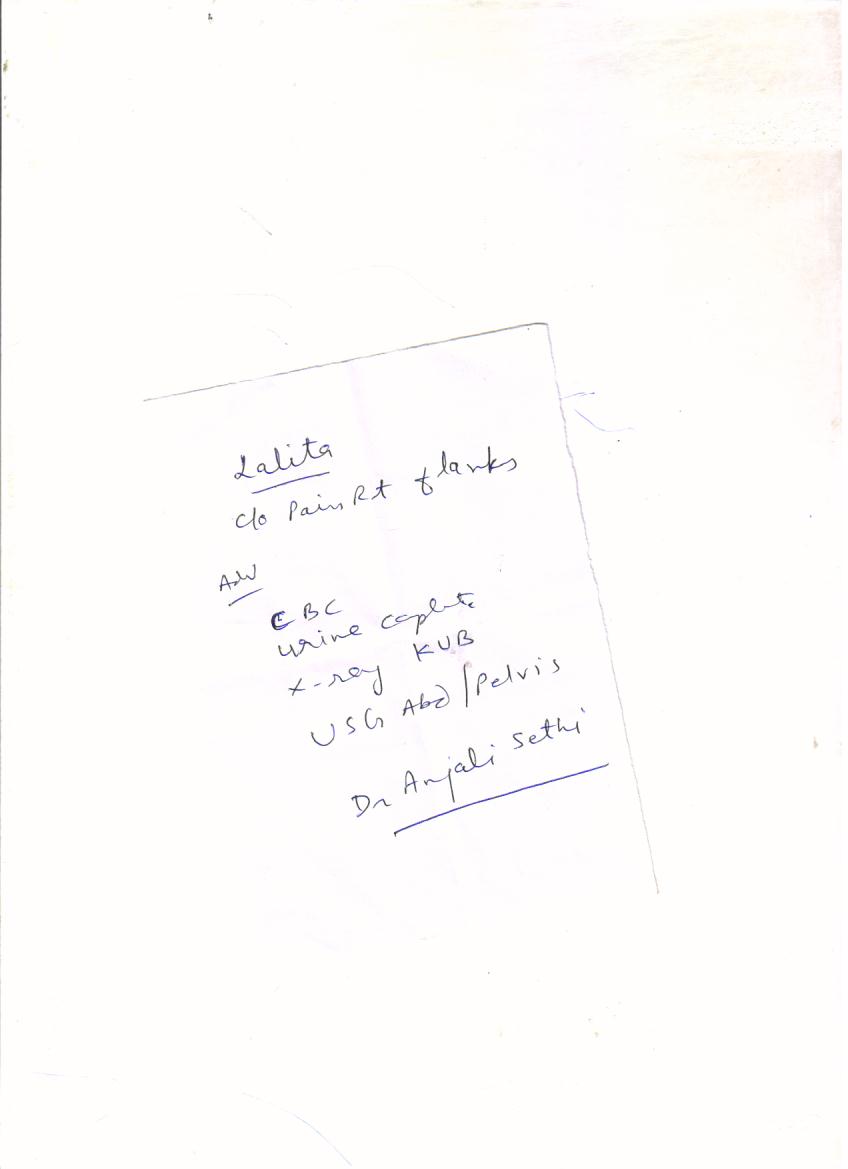 Lalita
c/o Pain Rt flanks
Adv
CBC
Urine complete
X-ray KUB
USG Abd/Pelvis
Dr Anjali Sethi